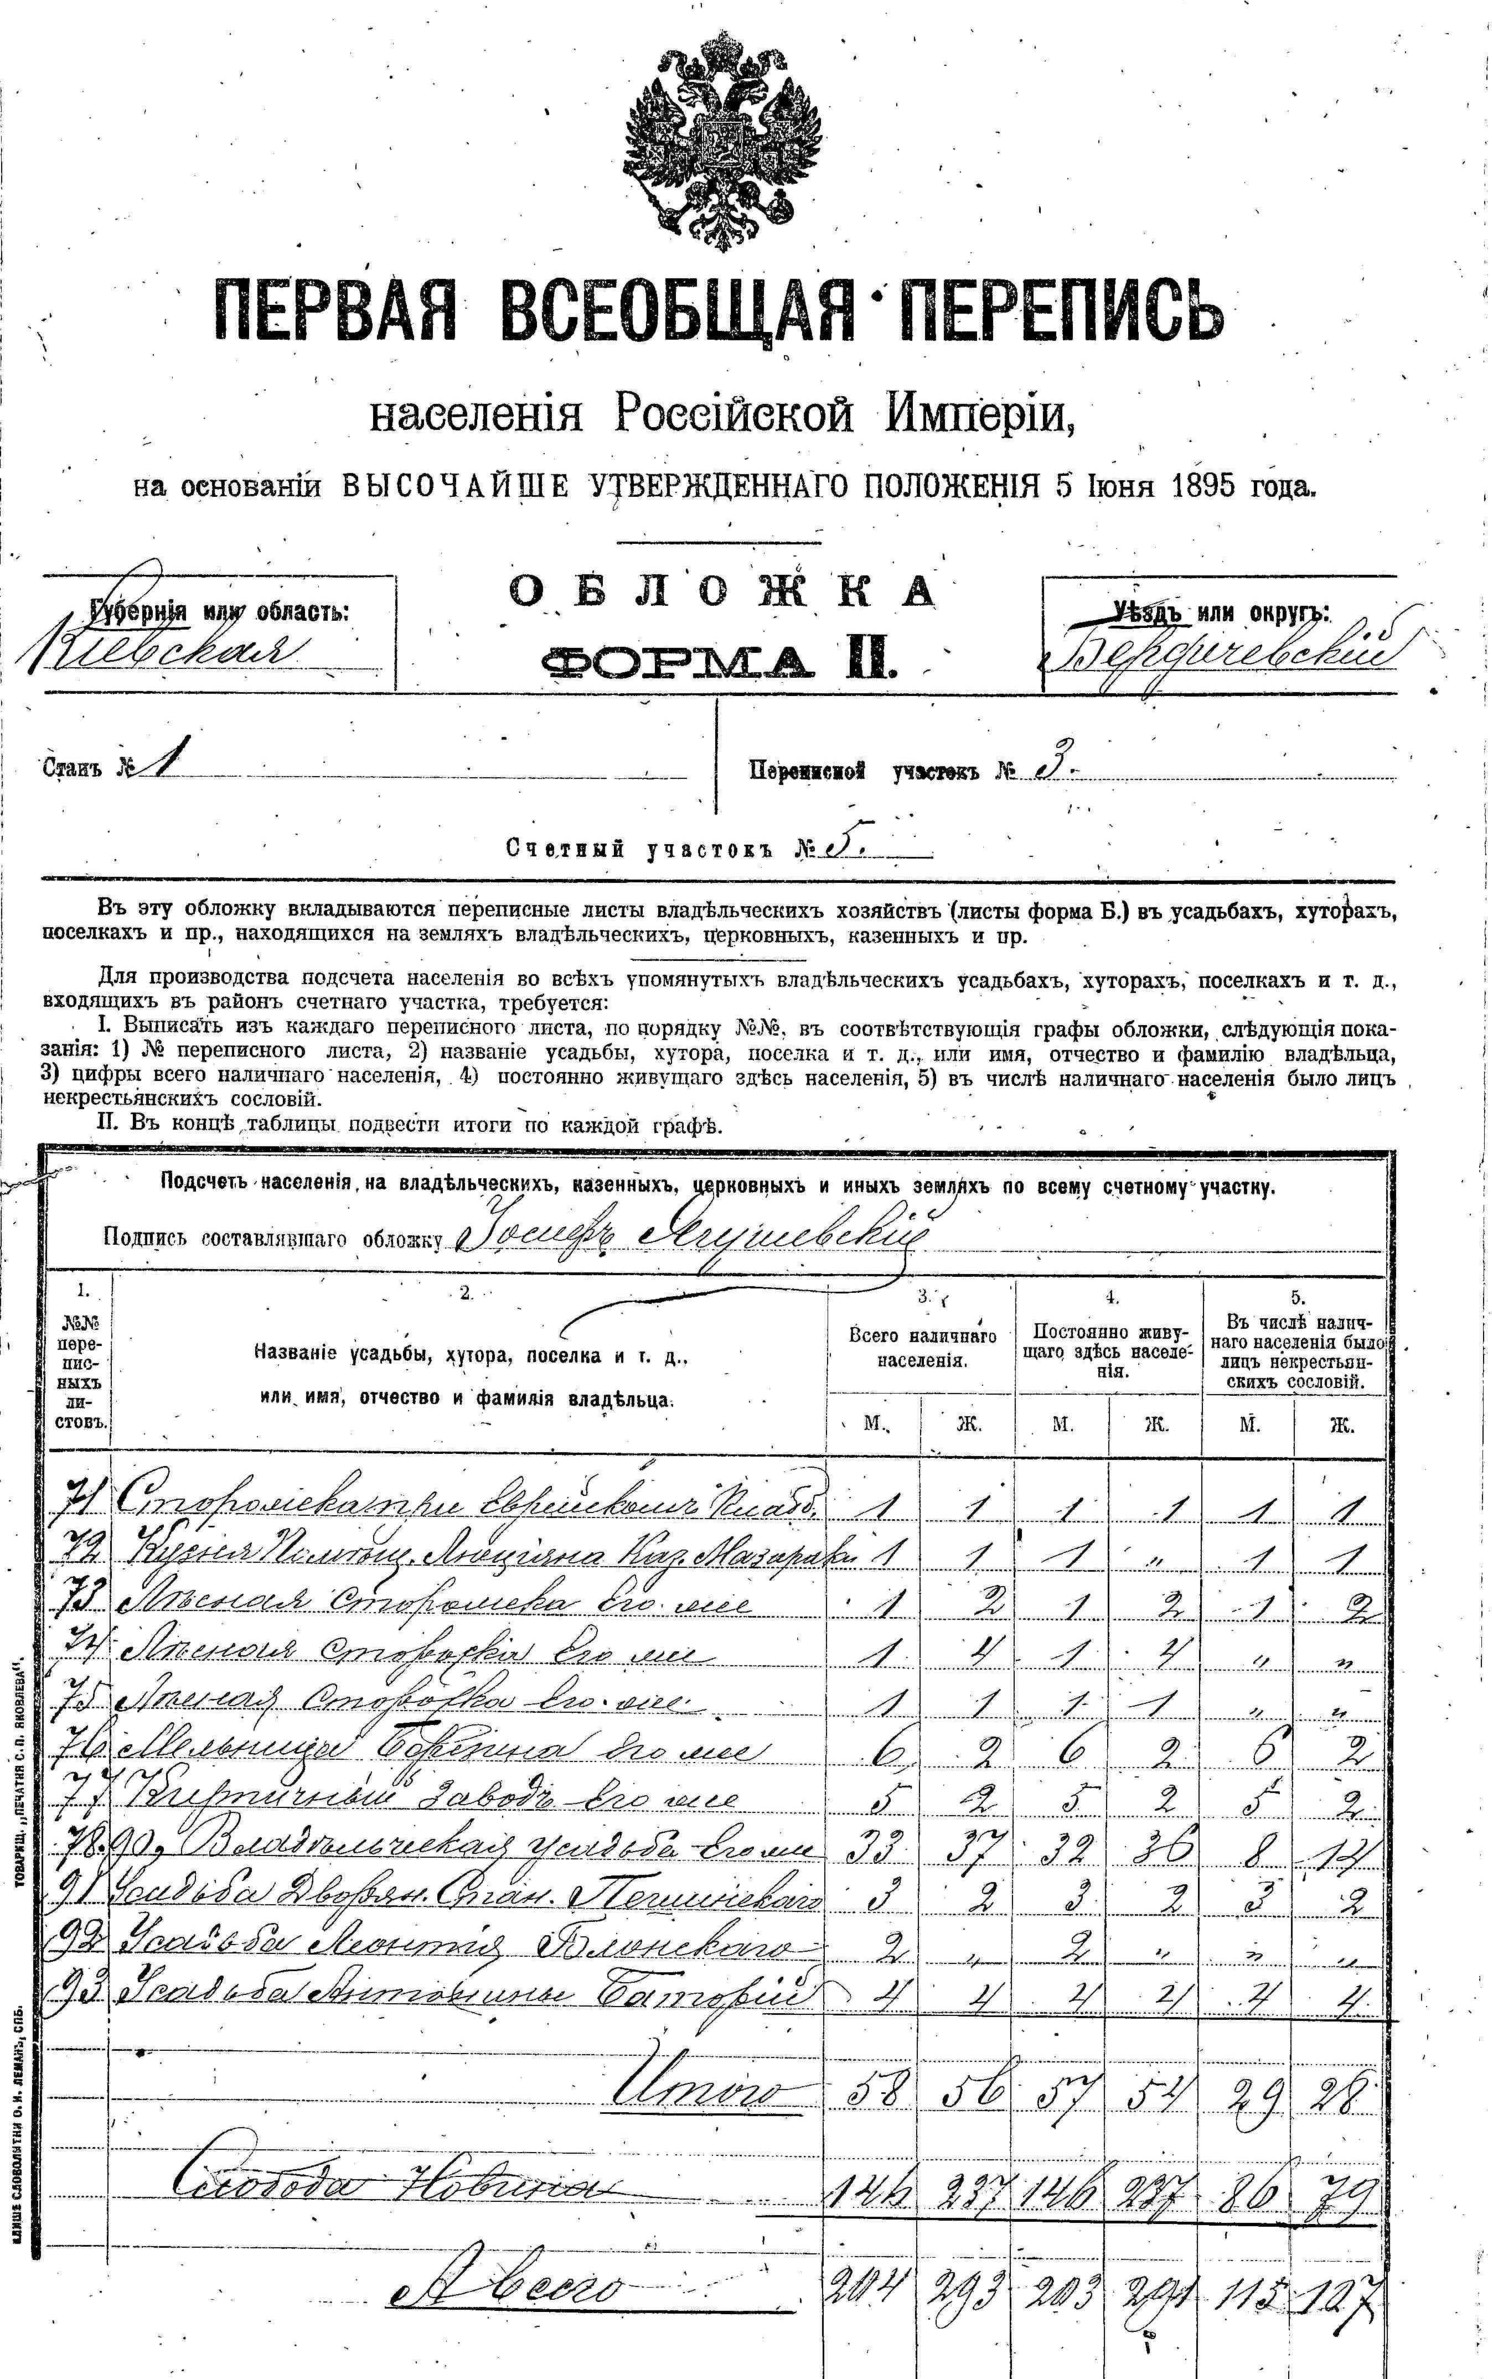 ПЕРВАЯ ВСЕОБЩАЯ ПЕРЕПИСЬ
населенія Россійской Имперіи,
на основаніи ВЫСОЧАЙШЕ УТВЕРЖДЕННАГО ПОЛОЖЕНІЯ 5 Іюня 1895 года.
ОБЛОЖКА
ФОРМА II.
Губернія или область:
Кіевская
Уѣздъ или округъ:
Бердичевскій
Станъ № 1
Переписной участокъ № 3.
Счетный участокъ № 5.
Въ эту обложку вкладываются переписные листы владѣльческихъ хозяйствъ (листы форма Б.) въ усадьбахъ, хуторахъ,
поселкахъ и пр., находящихся на земляхъ владѣльческихъ, церковныхъ, казенныхъ и пр.
Для производства подсчета населенія во всѣхъ упомянутыхъ владѣльческихъ усадьбахъ, хуторахъ, поселкахъ и т. д.,
входящихъ въ районъ счетнаго участка, требуется:
I. Выписать изъ каждаго переписного листа, по порядку №№, въ соотвѣтствующія графы обложки, слѣдующія пока-
занія: 1) № переписного листа, 2) названіе усадьбы, хутора, поселка и т. д., или имя, отчество и фамилію владѣльца,
3) цифры всего наличнаго населенія, 4) постоянно живущаго здѣсь населенія, 5) въ числѣ наличнаго населенія было лицъ
некрестьянскихъ сословій.
II. Въ концѣ таблицы подвести итоги по каждой графѣ.
Подсчетъ населенія на владѣльческихъ, казенныхъ, церковныхъ и иныхъ земляхъ по всему счетному участку.
Подпись составлявшаго обложку Іосифъ Ягушевскій
1. 2. 3. 4. 5.
№№ пере-
пис-
ныхъ
ли-
стовъ.
Названіе усадьбы, хутора, поселка и т. д.,
или имя, отчество и фамилія владѣльца.
Всего наличнаго
населенія.
Постоянно живу-
щаго здѣсь населе-
нія.
Въ числѣ налич-
наго населенія было
лицъ некрестьян-
скихъ сословій.
М. Ж. М. Ж. М. Ж.
71 Сторожка при Еврейскомъ Кладб. 1 1 1 1 1 1
72 Кузня Помѣщ. Люціяна Каз. Мазараки 1 1 1 " 1 1
73 Лѣсная Сторожка его-же 1 2 1 2 1 2
74 Лѣсная Сторожка его же 1 4 1 4 " "
75 Лѣсная Сторожка его-же 1 1 1 1 " "
76 Мельница его же 6 2 6 2 6 2
77 Кирпичный Заводъ его же 5 2 5 2 5 2
78-90 Владѣльческая усадьба его же 33 37 32 36 8 14
91 Усадьба Дворян. Стан. 3 2 3 2 3 2
92 Усадьба Леонтія Блонскаго 2 " 2 " " "
93 Усадьба Антонины Баторій 4 4 4 4 4 4
Итого 58 56 57 54 29 28
Слобода Новина 146 237 146 237 86 79
А всего 204 293 203 291 115 107
ТОВАРИЩ. „ПЕЧАТНЯ С. П. ЯКОВЛЕВА".
КЛИШЕ СЛОВОЛИТНИ О. И. ЛЕМАНЪ, СПБ.